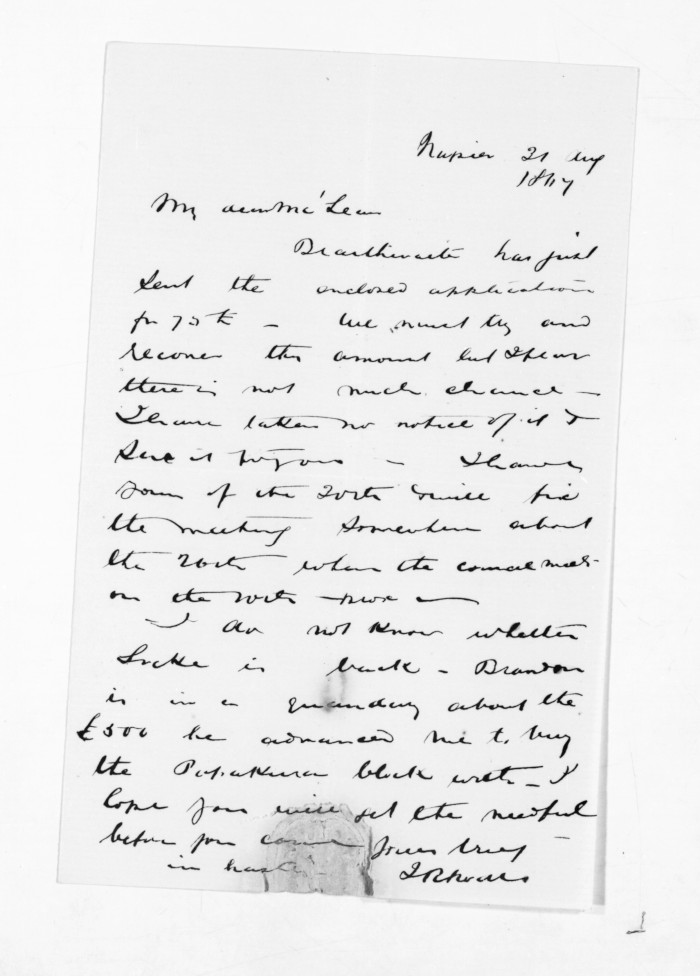 Napier 21 Aug
1867
My dear McLean
Braithwaite has just
sent the enclosed application
for 75th — We must try and
recover the amount but I fear
there is not much chance —
I have taken no notice of it &
send it to you —
of the 20th will fix
the meeting somewhere about
the 20th when the council meets
on the 20th
I do not know whether
Locke is back — Brandon
is in a quandary about the
£500 he advanced me to buy
the Papakura block with — I
hope you will get the needful
before you come Yours truly
in haste